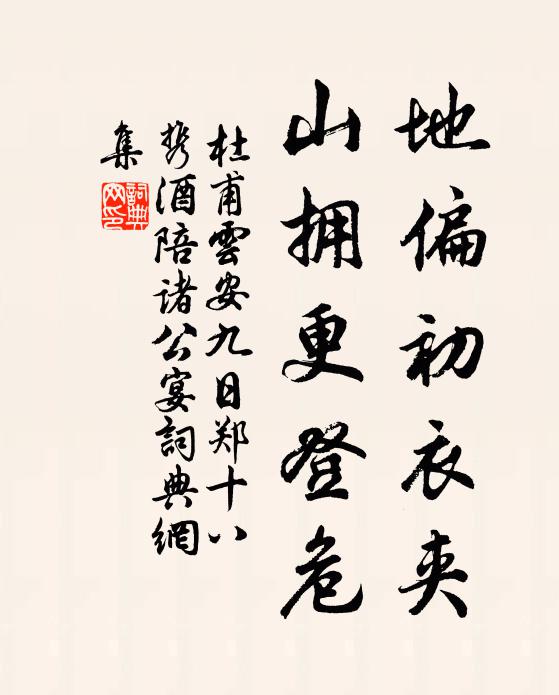 地偏初衣夹
山拥更登危
杜甫雲安九日郑十八
携酒陪诸公宴詞典網
集
詞典網印